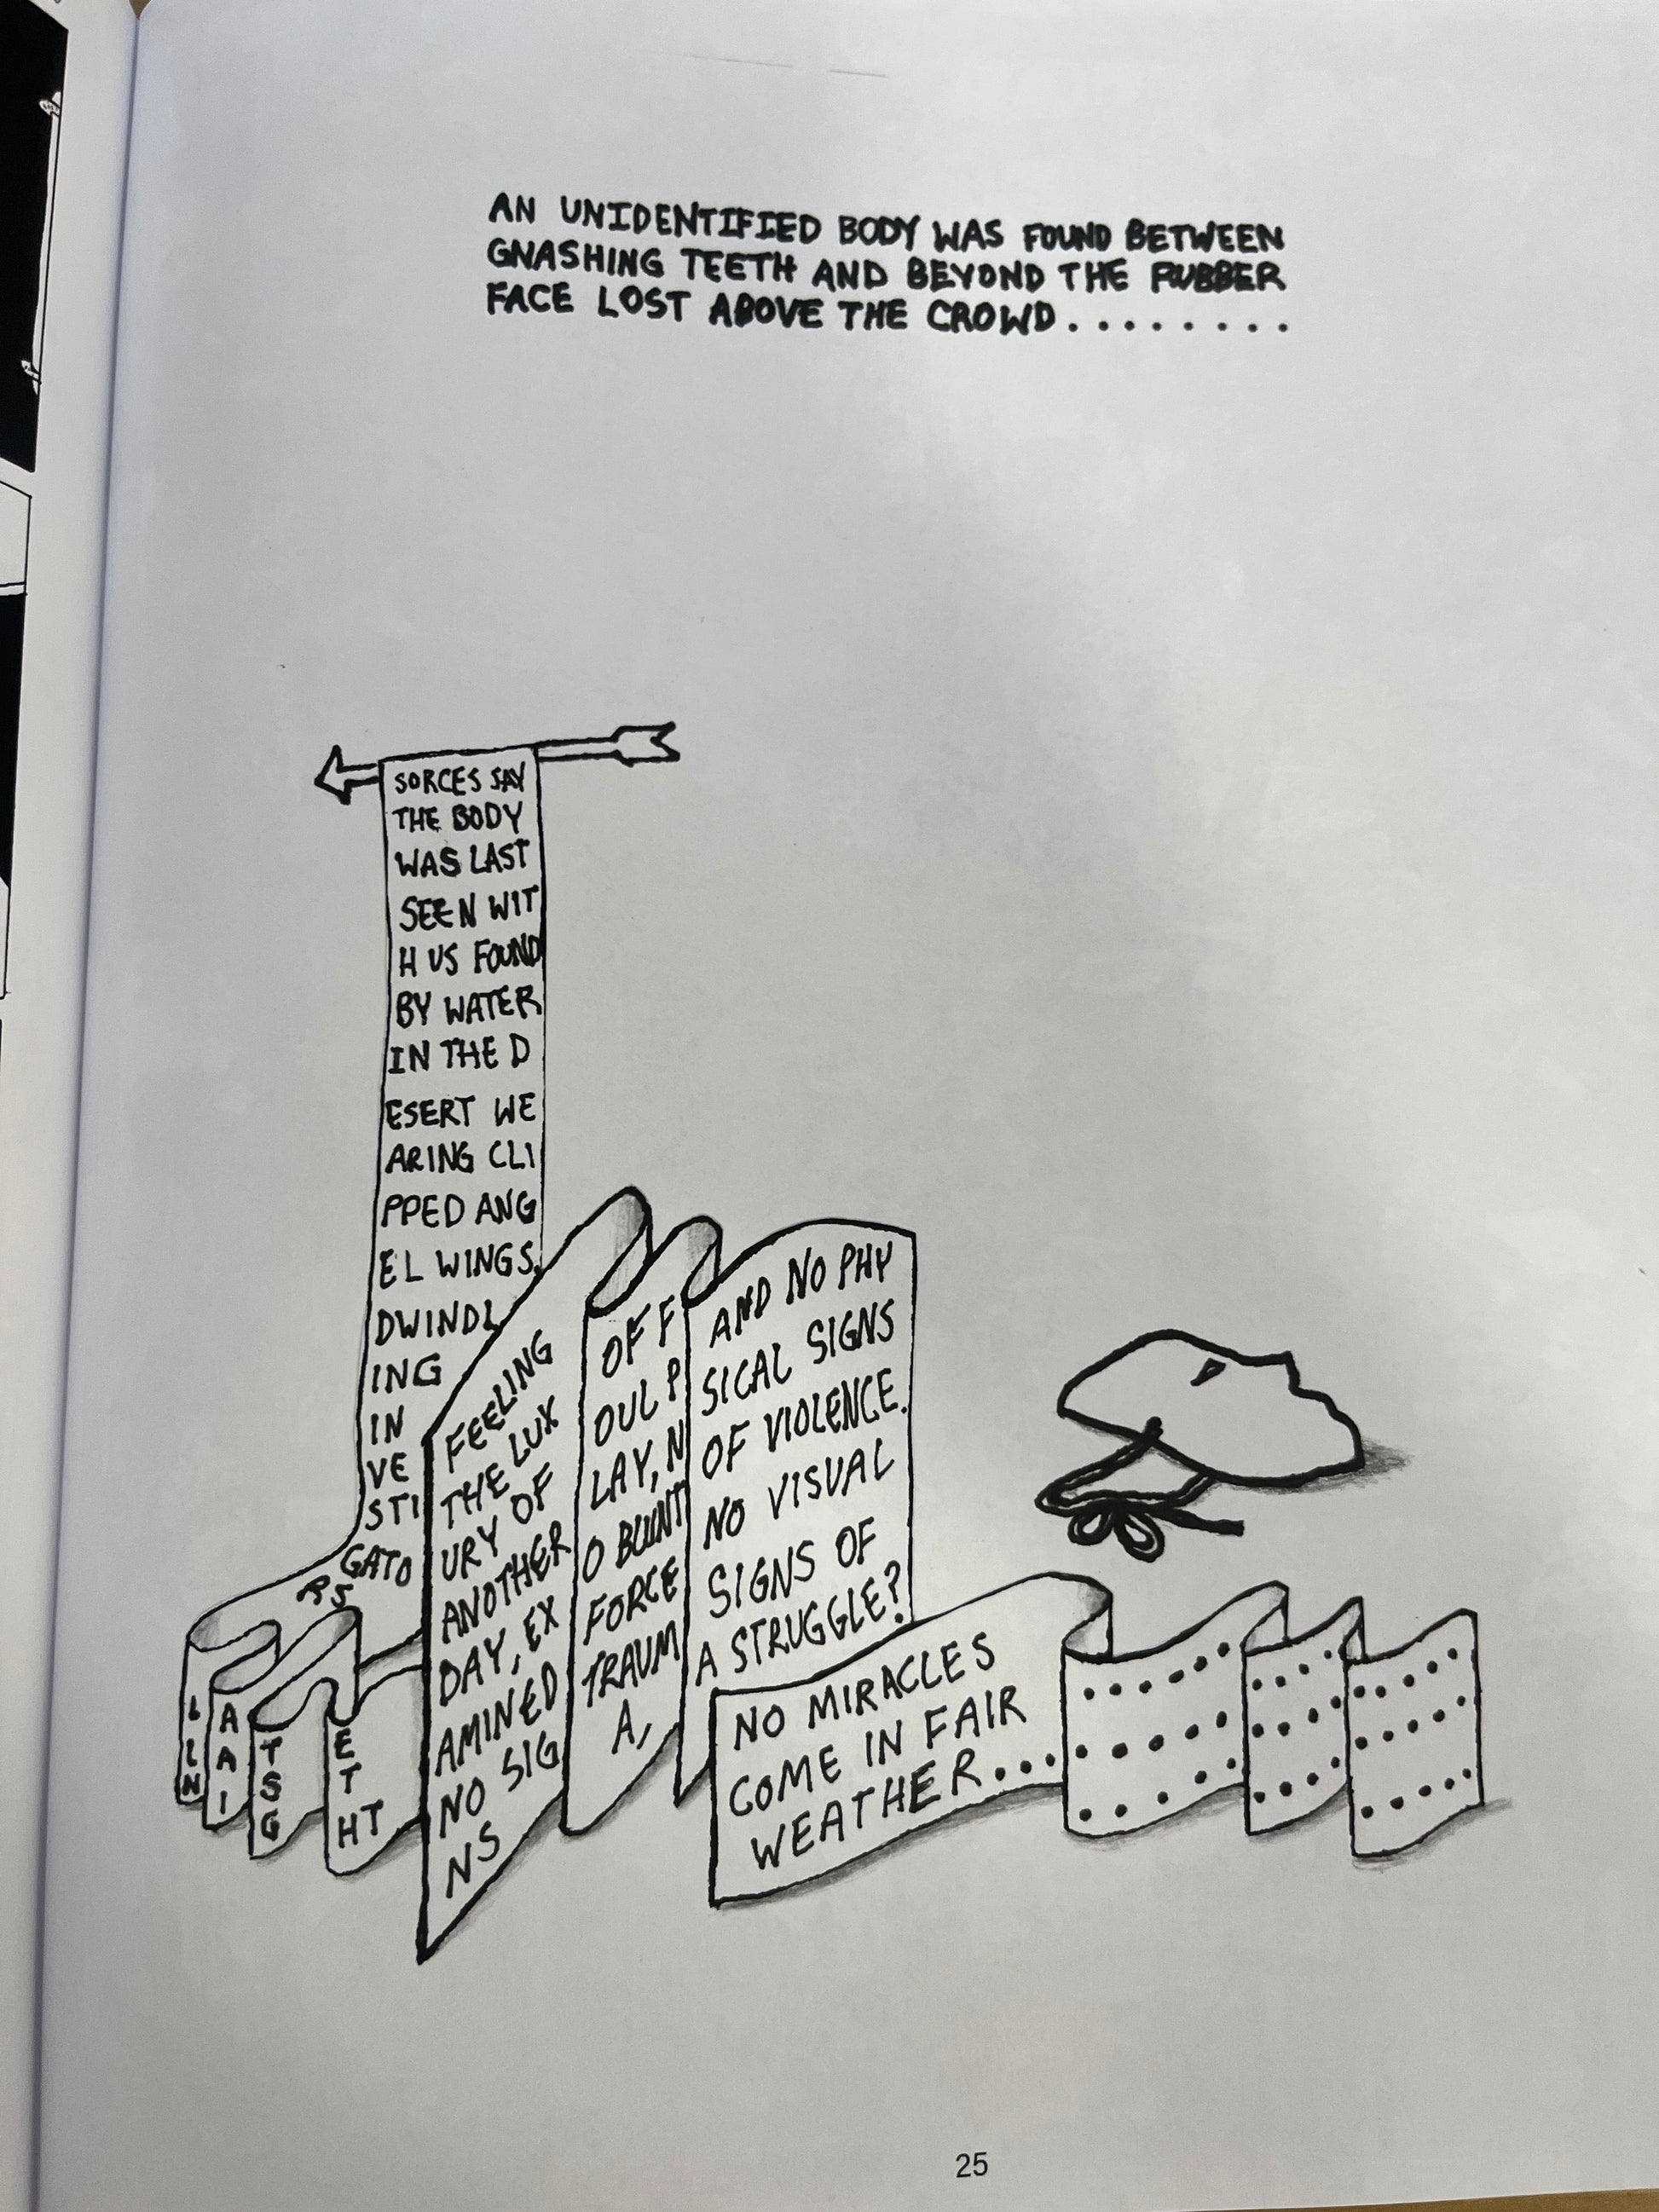 AN UNIDENTIFIED BODY WAS FOUND BETWEEN
GNASHING TEETH AND BEYOND THE RUBBER
FACE LOST ABOVE THE CROWD........
SORCES SAY
THE BODY
WAS LAST
SEEN WIT
H US FOUND
BY WATER
IN THE D
ESERT WE
ARING CLI
PPED ANG
EL WINGS.
DWINDL
ING
IN
VE
STI
GATO
RS
L
L
N
A
A
I
T
S
G
E
T
HT
FEELING
THE LUX
URY OF
ANOTHER
DAY, EX
AMINED
NO SIG
NS
OF F
OUL P
LAY, N
O BLUNT
FORCE
TRAUM
A,
AND NO PHY
SICAL SIGNS
OF VIOLENCE.
NO VISUAL
SIGNS OF
A STRUGGLE?
NO MIRACLES
COME IN FAIR
WEATHER...
25